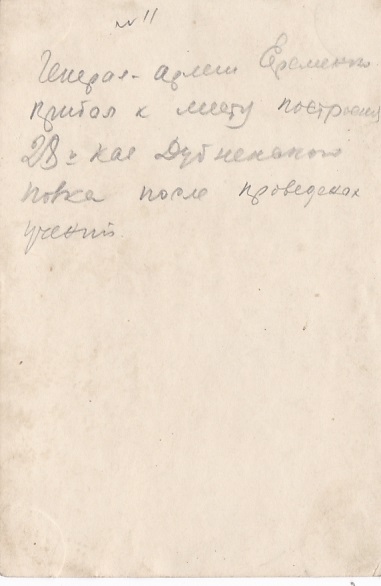 № 11
Генерал-армии Еременко
прибыл к месту построения
28го кав Дубненского
полка после проведеных
учений.